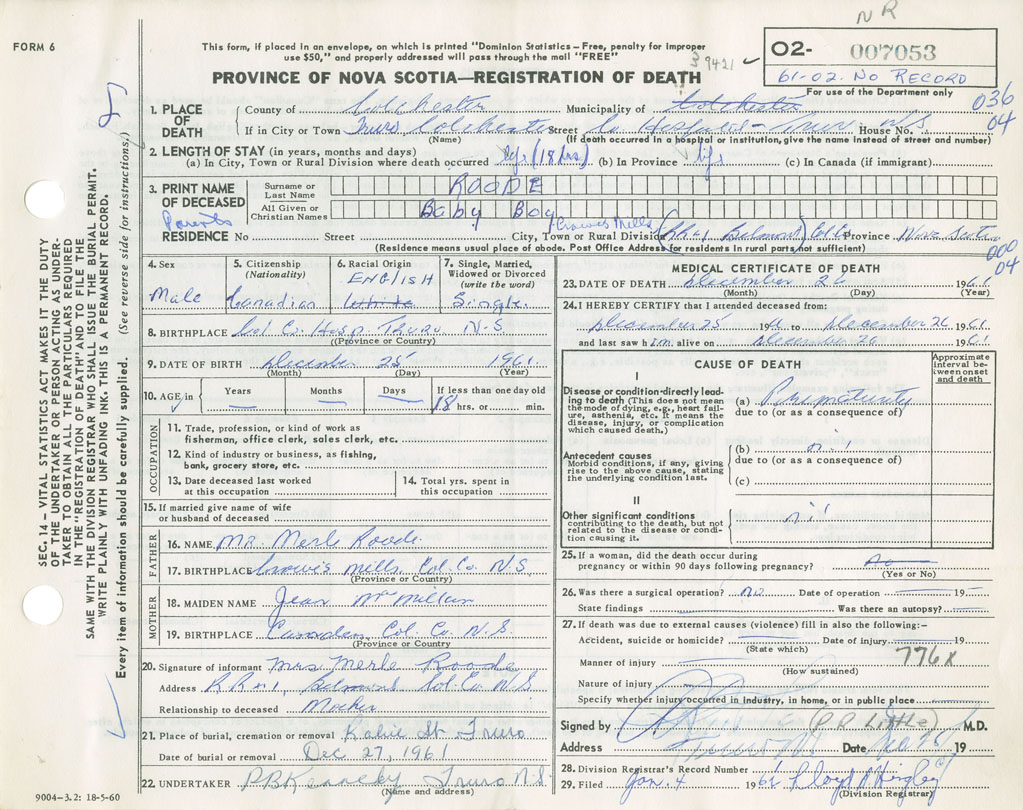 NR
FORM 6
This form, if placed in an envelope, on which is printed "Dominion Statistics – Free, penalty for improper
use $50," and properly addressed will pass through the mail "FREE"
39421
02- 007053
61-02. No RECORD
For use of the Department only
PROVINCE OF NOVA SCOTIA—REGISTRATION OF DEATH
036
04
1. PLACE OF DEATH
County of Colchester Municipality of Colchester
If in City or Town Truro, Colchester Street Co Hospital - Truro N.S House No.
(Name) (If death occurred in a hospital or institution, give the name instead of street and number)
2. LENGTH OF STAY (in years, months and days)
(a) In City, Town or Rural Division where death occurred life (18 hrs) (b) In Province life (c) In Canada (if immigrant)
3. PRINT NAME OF DECEASED
Surname or Last Name ROODE
All Given or Christian Names Baby Boy
Parents Crowes Mills
RESIDENCE No Street City, Town or Rural Division (RR#1 Belmont) Col Co Province Nova Scotia
(Residence means usual place of abode. Post Office Address for residents in rural parts not sufficient)
000
04
4. Sex
Male
5. Citizenship
(Nationality)
Canadian
6. Racial Origin
ENGLISH
White
7. Single, Married,
Widowed or Divorced
(write the word)
Single
8. BIRTHPLACE Col. Co. Hosp Truro N.S
(Province or Country)
9. DATE OF BIRTH December 25 1961
(Month) (Day) (Year)
10. AGE in
Years
Months
Days
If less than one day old
18 hrs. or min.
OCCUPATION
11. Trade, profession, or kind of work as
fisherman, office clerk, sales clerk, etc.
12. Kind of industry or business, as fishing,
bank, grocery store, etc.
13. Date deceased last worked
at this occupation
14. Total yrs. spent in
this occupation
15. If married give name of wife
or husband of deceased
FATHER
16. NAME Mr. Merle Roode
17. BIRTHPLACE Crowe's Mills, Col. Co. N.S.
(Province or Country)
MOTHER
18. MAIDEN NAME Jean
19. BIRTHPLACE Col. Co. N.S.
(Province or Country)
20. Signature of informant Mrs. Merle Roode
Address R R #1, Belmont Col. Co. N.S
Relationship to deceased Mother
21. Place of burial, cremation or removal Robie St. Truro
Date of burial or removal Dec 27, 1961
22. UNDERTAKER P.B. Kennedy Truro N.S.
(Name and address)
9004-3.2: 18-5-60
MEDICAL CERTIFICATE OF DEATH
23. DATE OF DEATH December 26 1961
(Month) (Day) (Year)
24. I HEREBY CERTIFY that I attended deceased from:
December 25 1961 to December 26 1961
and last saw h im alive on December 26 1961
CAUSE OF DEATH
Approximate
interval between onset
and death
I
Disease or condition directly leading to death (This does not mean
the mode of dying, e.g., heart failure, asthenia, etc. It means the
disease, injury, or complication
which caused death.)
(a) Prematurity
due to (or as a consequence of)
Antecedent causes
Morbid conditions, if any, giving
rise to the above cause, stating
the underlying condition last.
(b) nil
due to (or as a consequence of)
(c)
II
Other significant conditions
contributing to the death, but not
related to the disease or condition causing it.
nil
25. If a woman, did the death occur during
pregnancy or within 90 days following pregnancy? no
(Yes or No)
26. Was there a surgical operation? no Date of operation 19
State findings Was there an autopsy?
27. If death was due to external causes (violence) fill in also the following:–
Accident, suicide or homicide? Date of injury 19
(State which)
776X
Manner of injury
(How sustained)
Nature of injury
Specify whether injury occurred in industry, in home, or in public place
Signed by (P.R. Little) M.D.
Address Truro N.S Date 19
28. Division Registrar's Record Number 1
29. Filed Jan. 4 1962 Lloyd
(Division Registrar)
SEC. 14 – VITAL STATISTICS ACT MAKES IT THE DUTY
OF THE UNDERTAKER OR PERSON ACTING AS UNDERTAKER TO OBTAIN ALL THE PARTICULARS REQUIRED
IN THE "REGISTRATION OF DEATH" AND TO FILE THE
SAME WITH THE DIVISION REGISTRAR WHO SHALL ISSUE THE BURIAL PERMIT.
WRITE PLAINLY WITH UNFADING INK. THIS IS A PERMANENT RECORD.
Every item of information should be carefully supplied. (See reverse side for instructions.)